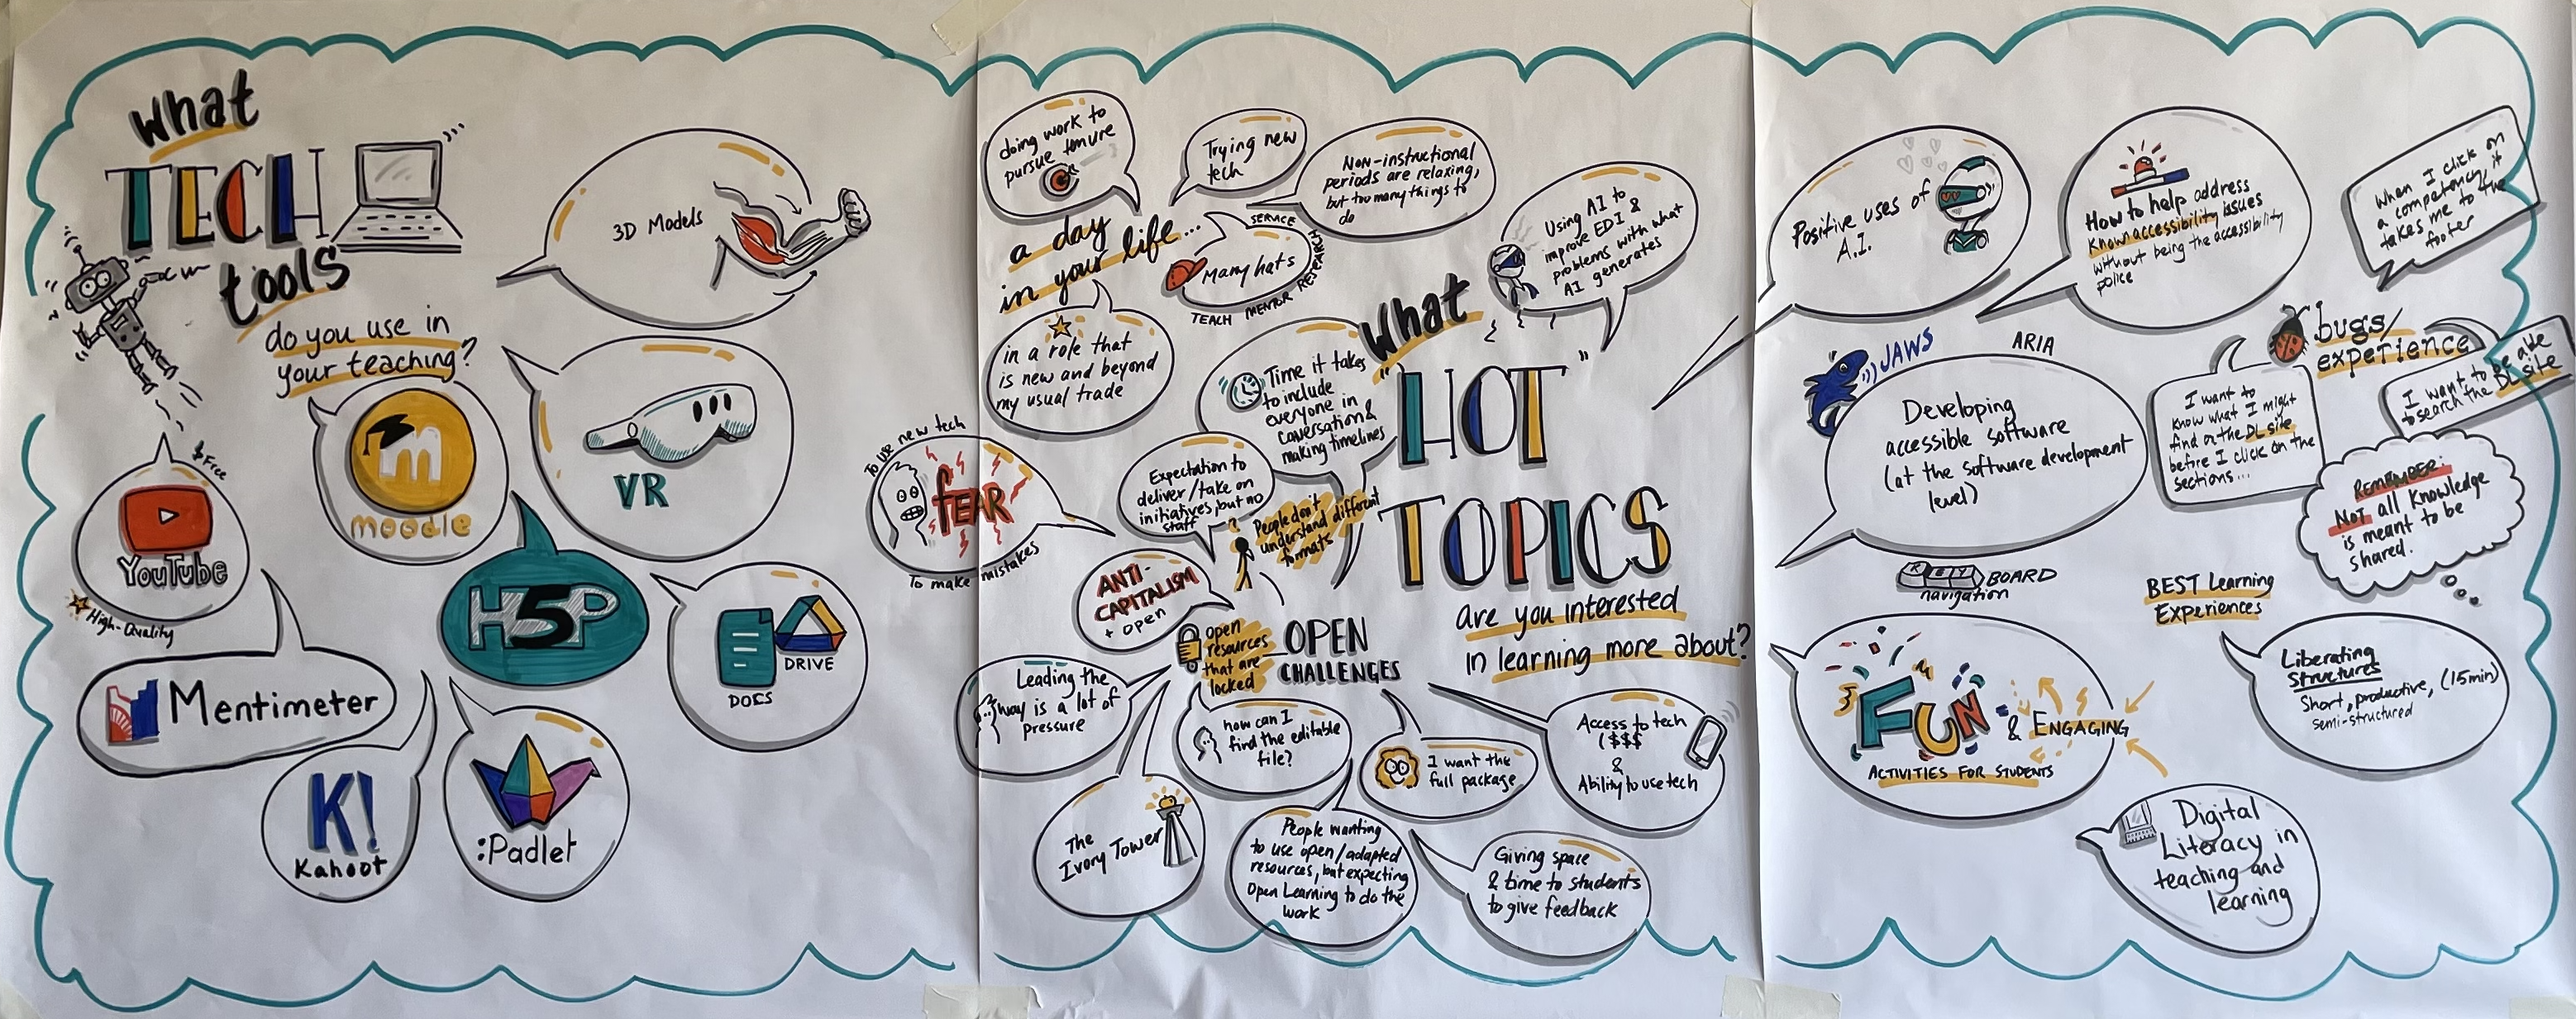 What
TECH
tools
do you use in
your teaching?
3D Models
m
moodle
VR
$ Free
YouTube
High-Quality
H5P
DOCS
DRIVE
Mentimeter
K!
Kahoot
:Padlet
doing work to
pursue tenure
Trying new
tech
Non-instructional
periods are relaxing,
but too many things to
do
a day
in your life...
SERVICE
Many hats
TEACH MENTOR RESEARCH
in a role that
is new and beyond
my usual trade
Using AI to
improve EDI &
problems with what
AI generates
Time it takes
to include
everyone in
conversation &
making timelines
To use new tech
fEAR
To make mistakes
Expectation to
deliver/take on
initiatives, but no
staff
People don't
understand different
formats
ANTI-
CAPITALISM
+ open
open
resources
that are
locked
OPEN
CHALLENGES
Leading the
way is a lot of
pressure
how can I
find the editable
file?
I want the
full package
Access to tech
($$$
&
Ability to use tech
The
Ivory Tower
People wanting
to use open/adapted
resources, but expecting
Open Learning to do the
work
Giving space
& time to students
to give feedback
What
"HOT"
TOPICS
are you interested
in learning more about?
Positive uses of
A.I.
How to help address
known accessibility issues
without being the accessibility
police
When I click on
a competency it
takes me to the
footer
JAWS
ARIA
Developing
accessible software
(at the software development
level)
KEY BOARD
navigation
bugs/
experience
I want to
know what I might
find on the DL site
before I click on the
sections...
I want to be able
to search the DL site
REMEMBER:
NOT all knowledge
is meant to be
shared.
BEST Learning
Experiences
Liberating
Structures
Short, productive, (15min)
semi-structured
FUN
& ENGAGING
ACTIVITIES FOR STUDENTS
Digital
Literacy in
teaching and
learning